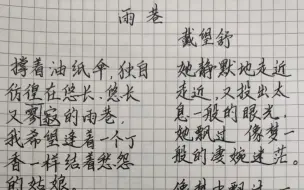 雨巷
戴望舒
撑着油纸伞，独自
彷徨在悠长、悠长
又寂寥的雨巷，
我希望逢着一个丁
香一样结着愁怨
的姑娘。
她静默地走近
走近，又投出太
息一般的眼光，
她飘过 像梦一
般的凄婉迷茫。
像梦中飘过一